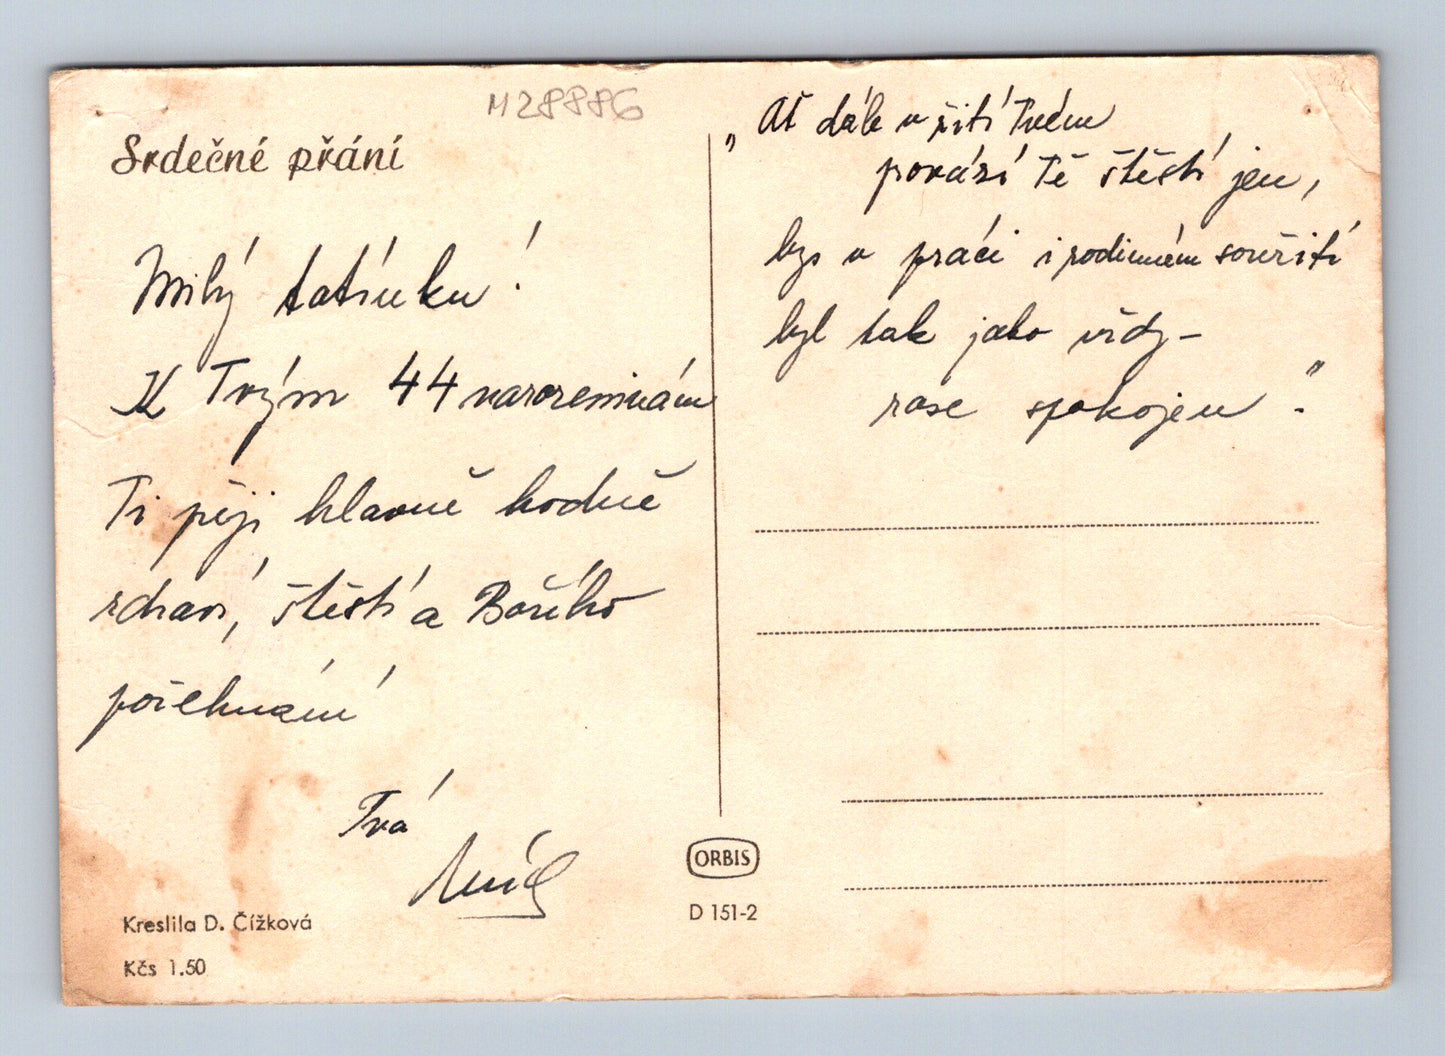 M28886
Srdečné přání
Milý tatínku!
K Tvým 44 narozeninám
Ti přeji hlavně hodně
zdraví, štěstí a Božího
požehnání
Tvá
Kreslila D. Čížková
Kčs 1.50
ORBIS
D 151-2
„Ať dále v žití Tvém
provází Tě štěstí jen,
bys v práci i rodinném soužití
byl tak jako vždy –
zase spokojen."